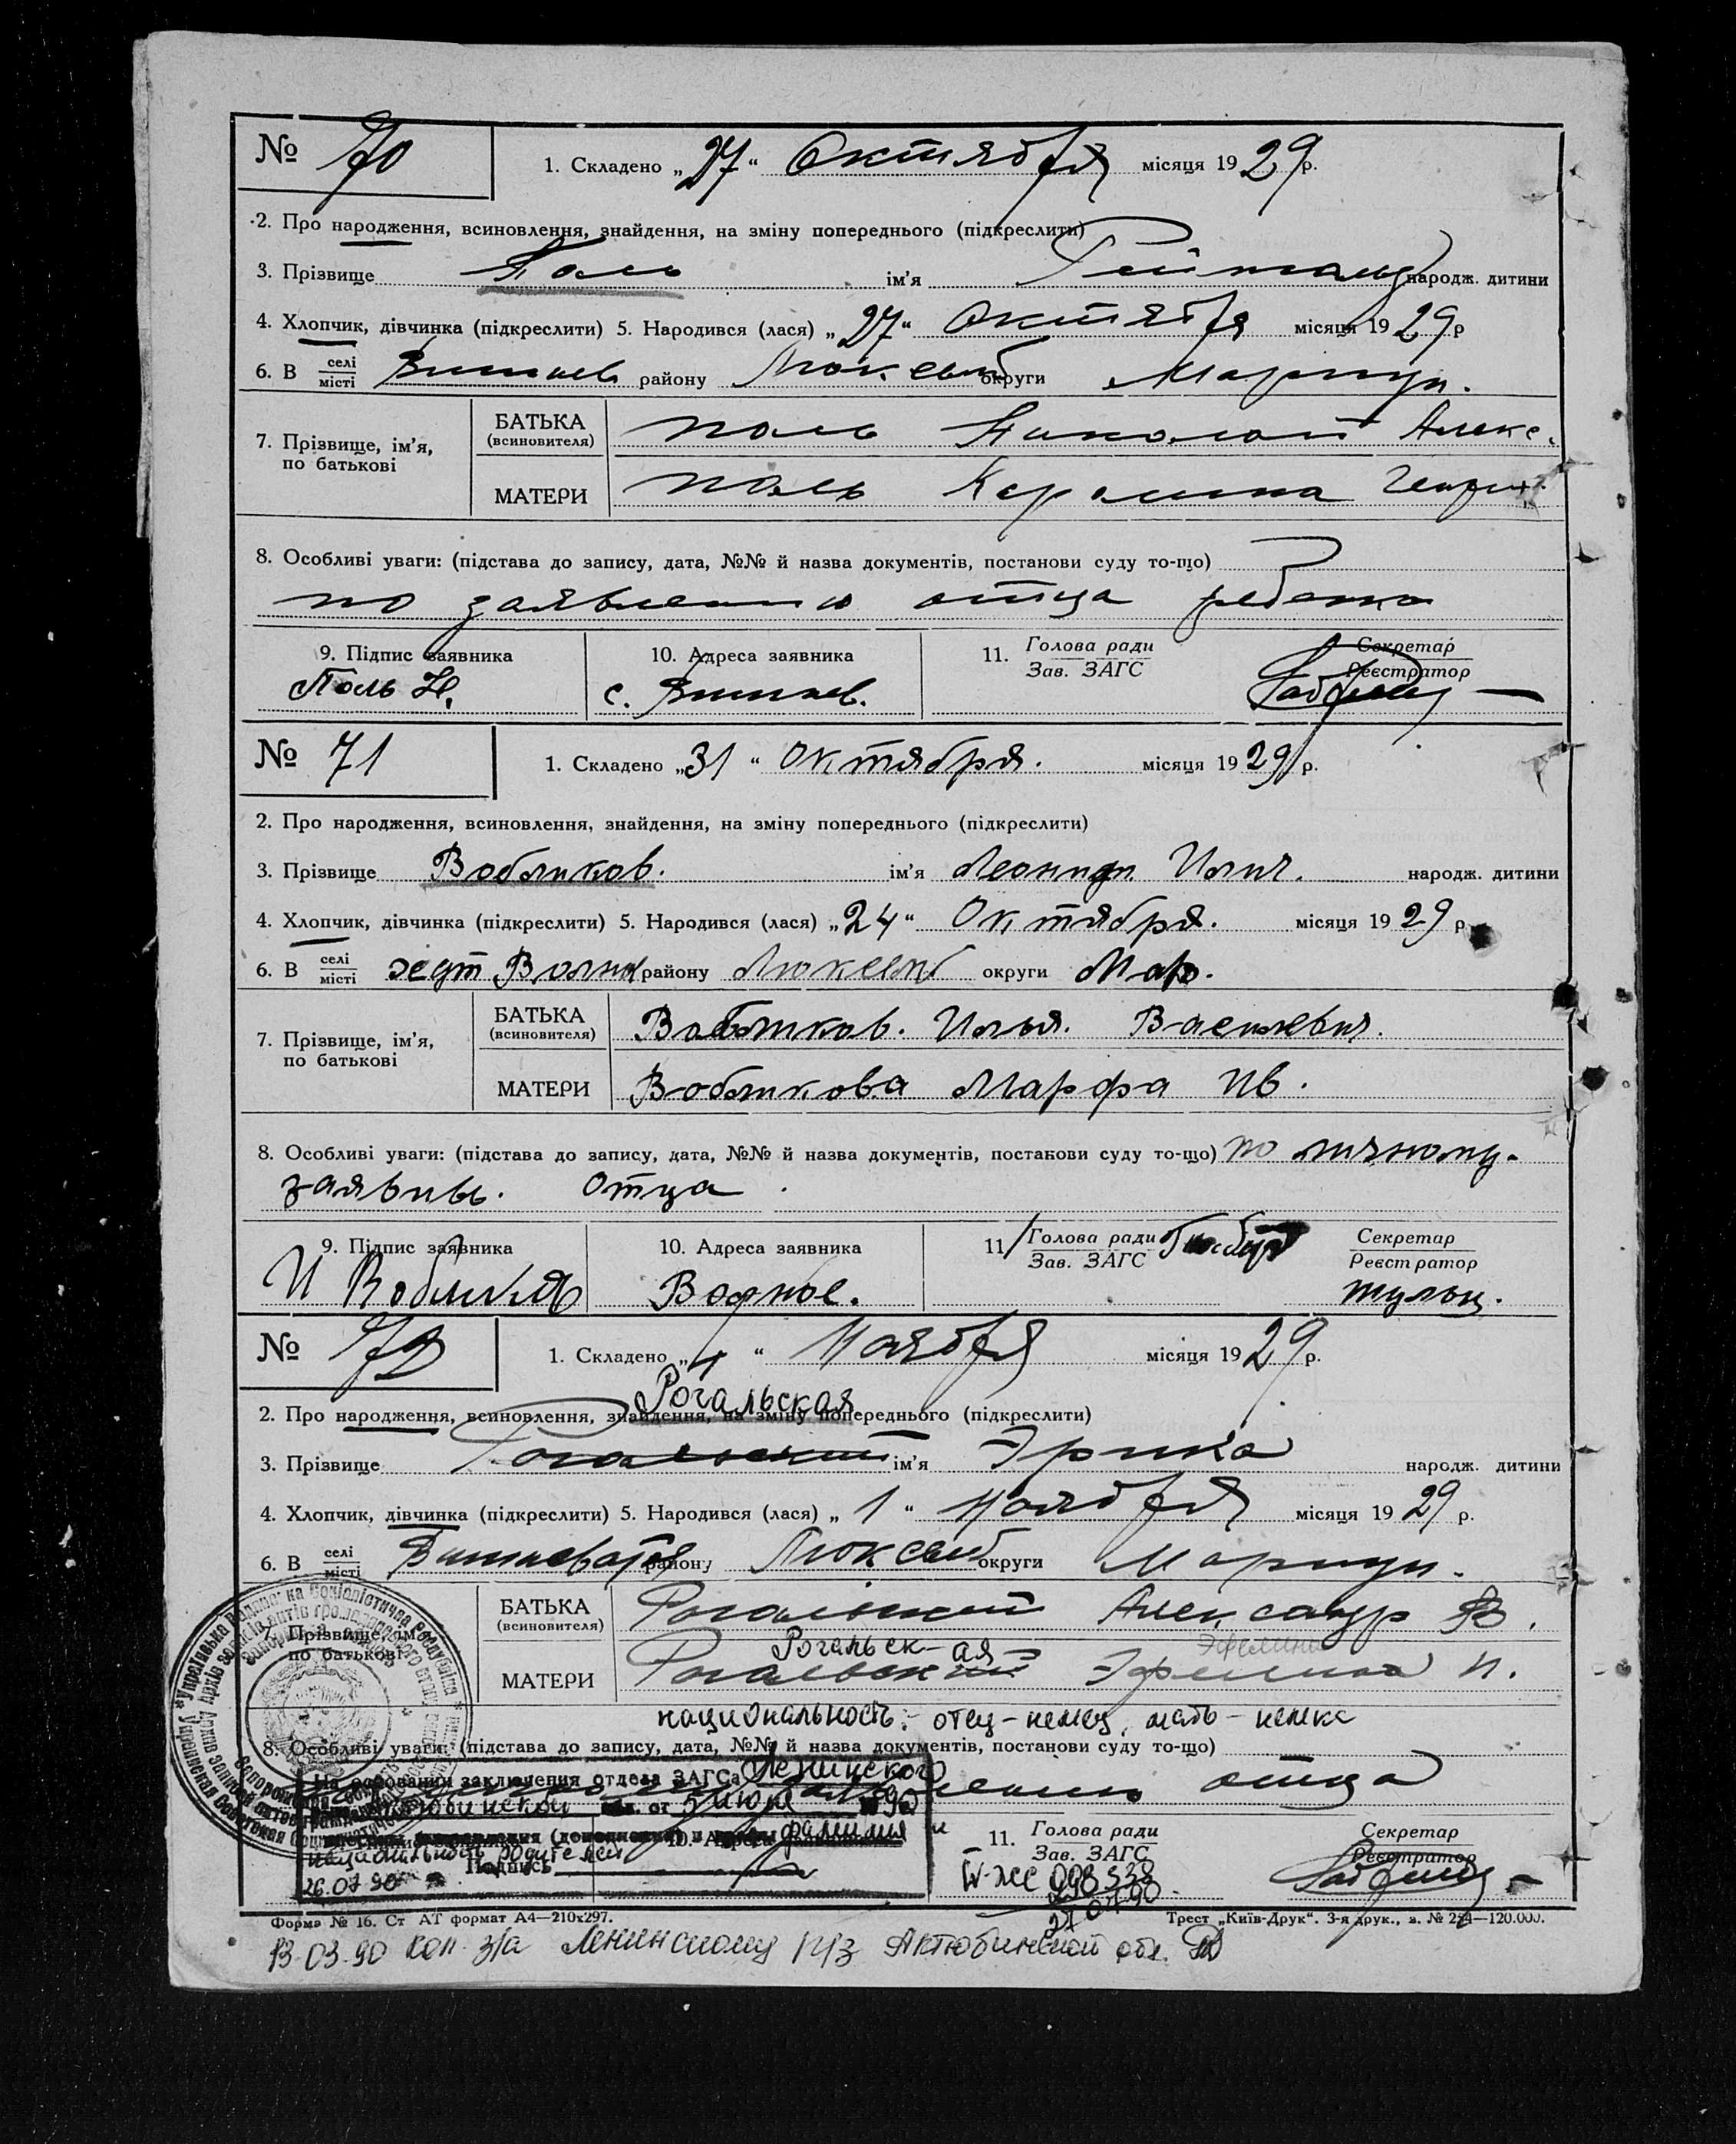 № 70
1. Складено „27“ Октября місяця 1929 р.
2. Про народження, всиновлення, знайдення, на зміну попереднього (підкреслити)
3. Прізвище Поль ім'я народж. дитини
4. Хлопчик, дівчинка (підкреслити) 5. Народився (лася) „27“ Октября місяця 1929 р
6. В селі/місті Вишнев. району Люксемб округи Мариуп.
7. Прізвище, ім'я, по батькові
БАТЬКА (всиновителя) Поль Николай Алекс.
МАТЕРИ Поль Каролина Генрих.
8. Особливі уваги: (підстава до запису, дата, №№ й назва документів, постанови суду то-що)
по заявлению отца ребенка
9. Підпис заявника 10. Адреса заявника 11. Голова ради/Зав. ЗАГС Секретар/Реєстратор
Поль Н. с. Вишнев.
№ 71
1. Складено „31“ Октября. місяця 1929 р.
2. Про народження, всиновлення, знайдення, на зміну попереднього (підкреслити)
3. Прізвище Вобликов. ім'я Леонид Ильич. народж. дитини
4. Хлопчик, дівчинка (підкреслити) 5. Народився (лася) „24“ Октября. місяця 1929 р
6. В селі/місті району Люксемб округи Мар.
7. Прізвище, ім'я, по батькові
БАТЬКА (всиновителя) Вобликов. Илья. Василевич.
МАТЕРИ Вобликова Марфа Ив.
8. Особливі уваги: (підстава до запису, дата, №№ й назва документів, постанови суду то-що) по личному
заявивь. Отца.
9. Підпис заявника 10. Адреса заявника 11. Голова ради/Зав. ЗАГС Секретар/Реєстратор
И Вобликов Водное.
№ 72
1. Складено „1“ Ноября місяця 1929 р.
Рогальская
2. Про народження, всиновлення, знайдення, на зміну попереднього (підкреслити)
3. Прізвище Рогальский ім'я Эрика народж. дитини
4. Хлопчик, дівчинка (підкреслити) 5. Народився (лася) „1“ Ноября місяця 1929 р.
6. В селі/місті Вишневатое району Люксемб округи Мариуп.
7. Прізвище, ім'я, по батькові
БАТЬКА (всиновителя) Рогальский Александр В.
Рогальск-ая
МАТЕРИ Рогальский И.
национальность: отец - немец, мать - немка
8. Особливі уваги: (підстава до запису, дата, №№ й назва документів, постанови суду то-що)
На основании заключения отдела ЗАГСа Ленинского
отца
от 5 июня 1990
фамилия и
национальность родителей
Подпись
26.07.90
11. Голова ради/Зав. ЗАГС Секретар/Реєстратор
Форма № 16. Ст АТ формат А4—210х297. Трест „Київ-Друк“. 3-я друк., з. № 254—120.000.
13.03.90 коп. з/а Ленинскому р/з Актюбинской обл.